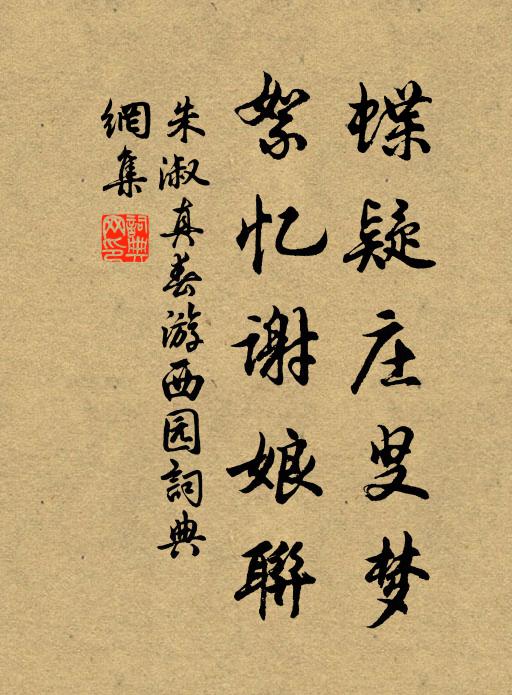 蝶疑庄叟梦
絮忆谢娘聯
朱淑真春游西园詞典
網集
詞典网印